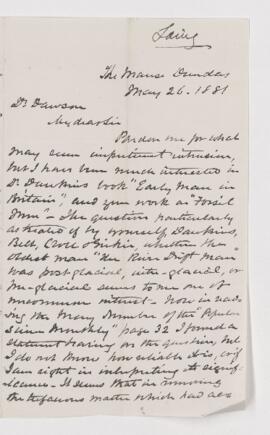 Laing
The Manse Dundas
May 26. 1881
Dr Dawson
My dear Sir
Pardon me for what
may seem impertinent intrusion,
but I have been much interested in
Dr Dawkins book "Early Man in
Britain", and your work on "Fossil
Men" - The question particularly
as treated of by yourself, Dawkins,
Belt, Croll & Geikie, whether the
oldest man "the River Drift Man"
was post-glacial, inter-glacial, or
pre-glacial seems to me one of
uncommon interest - Now in read
ing the May Number of the "Popular
Science Monthly" page 32 I found a
statement bearing on the question, but
I do not know how reliable it is, or if
I am right in interpreting its signif-
icance - It seems that in removing
the tufaceous matter which had ac-